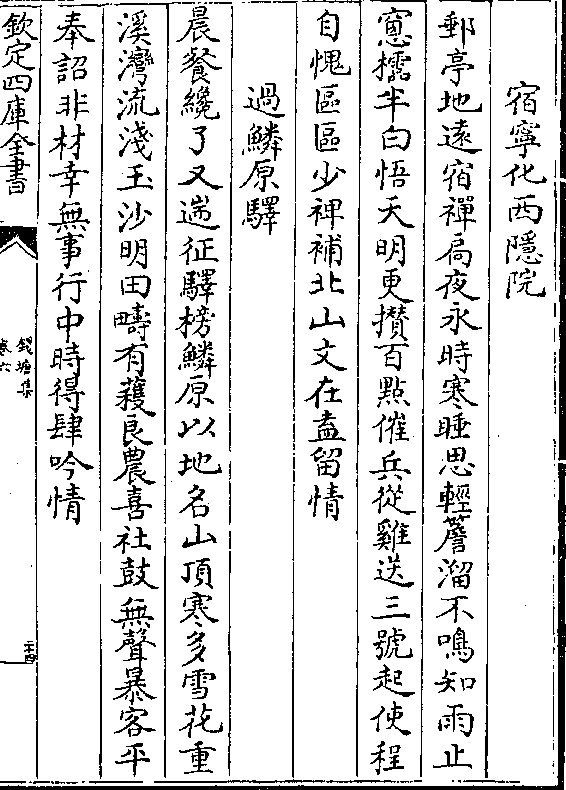 宿寧化西隱院
郵亭地遠宿禪扃夜永時寒睡思輕簷溜不鳴知雨止
窻櫺半白悟天明更攢百點催兵從雞送三號起使程
自愧區區少裨補北山文在盍留情
過鱗原驛
晨餐纔了又遄征驛榜鱗原以地名山頂寒多雪花重
溪灣流淺玉沙明田疇有蓷良農喜社鼓無聲暴客平
奉詔非材幸無事行中時得肆吟情
欽定四庫全書
錢塘集
卷六
二十四